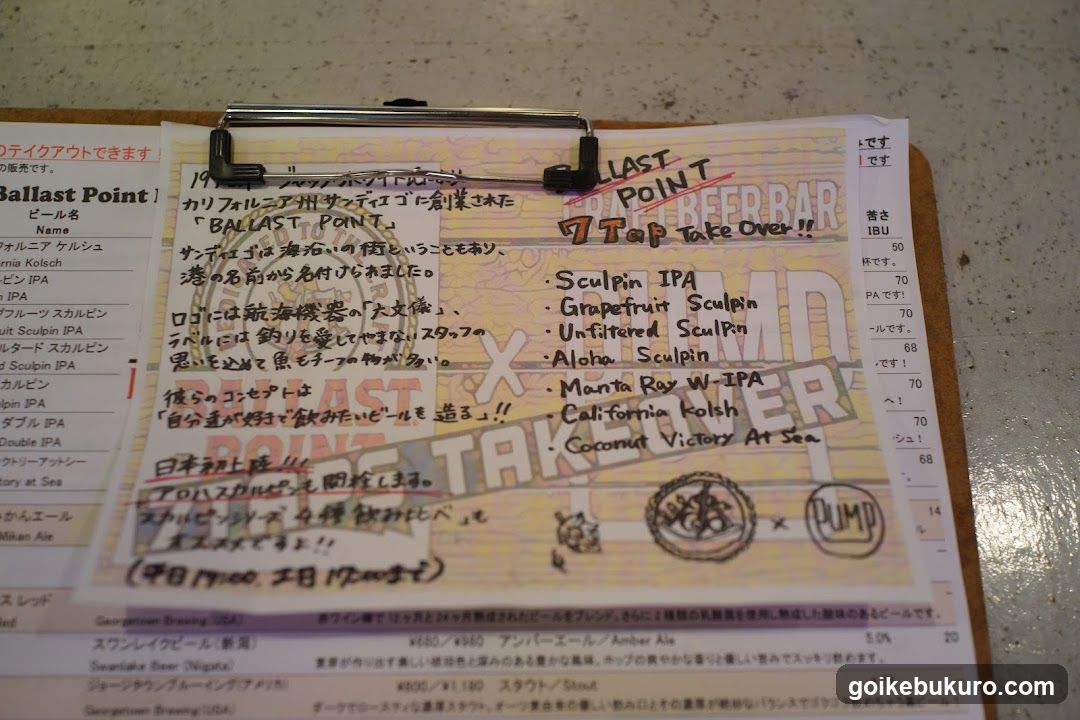 のテイクアウトできます！
の販売です。
Ballast Point
ビール名
Name
フォルニア ケルシュ
rnia Kolsch
ピン IPA
n IPA
プフルーツ スカルピン
uit Sculpin IPA
ルタード スカルピン
d Sculpin IPA
カルピン
lpin IPA
ダブル IPA
Double IPA
クトリーアットシー
tory at Sea
みかんエール
Mikan Ale
ス レッド
カリフォルニア州 サンディエゴに創業された
「BALLAST POINT」
サンディエゴは海沿いの街ということもあり、
港の名前から名付けられました。
ロゴには航海機器の「六文儀」、
ラベルには釣りを愛してやまないスタッフの
思いを込めて魚モチーフの物が多い。
彼らのコンセプトは
「自分達が好きで飲みたいビールを造る」!!
日本初上陸!!!
アロハスカルピンも開栓します。
スカルピンシリーズ 4種飲みくらべ」も
オススメですよ!!
(平日19:00. 土日17:00まで)
BALLAST
POINT
7 Tap Take Over!!
・Sculpin IPA
・Grapefruit Sculpin
・Unfiltered Sculpin
・Aloha Sculpin
・Manta Ray W-IPA
・California Kolsh
・Coconut Victory At Sea
× PUMP
CRAFT BEER BAR
BALLAST
POINT
×
TAPS TAKEOVER
です
です
苦さ
IBU
50
杯です。
70
PA です!
70
ールです。
68
です！
70
へ！
70
シュ！
68
14
20
Georgetown Brewing(USA)
赤ワイン樽で12ヶ月と24ヶ月熟成されたビールをブレンド。さらに2種類の乳酸菌を使用し熟成した酸味のあるビールです。
スワンレイクビール（新潟） ¥680／¥980 アンバーエール／Amber Ale 5.0%
Swanlake Beer (Niigata)
ジョージタウンブルーイング(アメリカ) ¥800／¥1,180 スタウト／Stout
Georgetown Brewing(USA)
goikebukuro.com